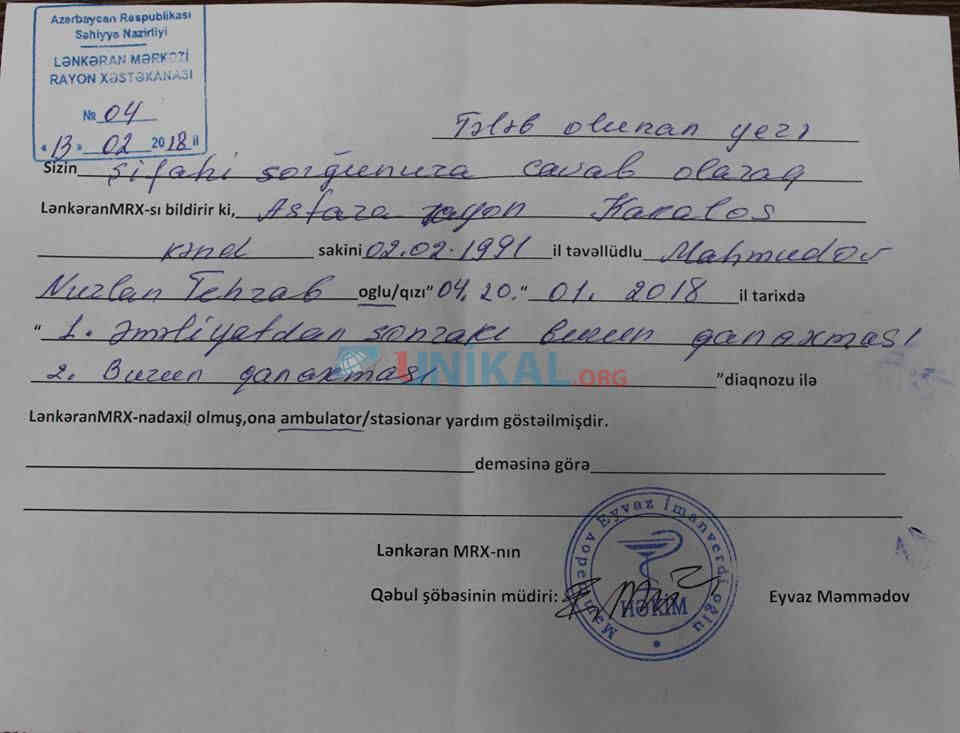 Azərbaycan Respublikası
Səhiyyə Nazirliyi
LƏNKƏRAN MƏRKƏZİ
RAYON XƏSTƏXANASI
№ 04
"13" 02 2018 il
Tələb olunan yerə
Sizin şifahi sorğunuza cavab olaraq
LənkəranMRX-sı bildirir ki, Astara rayon Kakalos
kənd sakini 02.02.1991 il təvəllüdlu Mahmudov
Nurlan Tehrab oglu/qızı "04. 20." 01. 2018 il tarixdə
" 1. Əməliyatdan sonrakı burun qanaxması
2. Burun qanaxması "diaqnozu ilə
UNİKAL.ORG
LənkəranMRX-nadaxil olmuş,ona ambulator/stasionar yardım göstəilmişdir.
deməsinə görə
Lənkəran MRX-nın
Qəbul şöbəsinin müdiri: Eyvaz Məmmədov
Məmmədov Eyvaz İmanverdi oğlu
HƏKİM